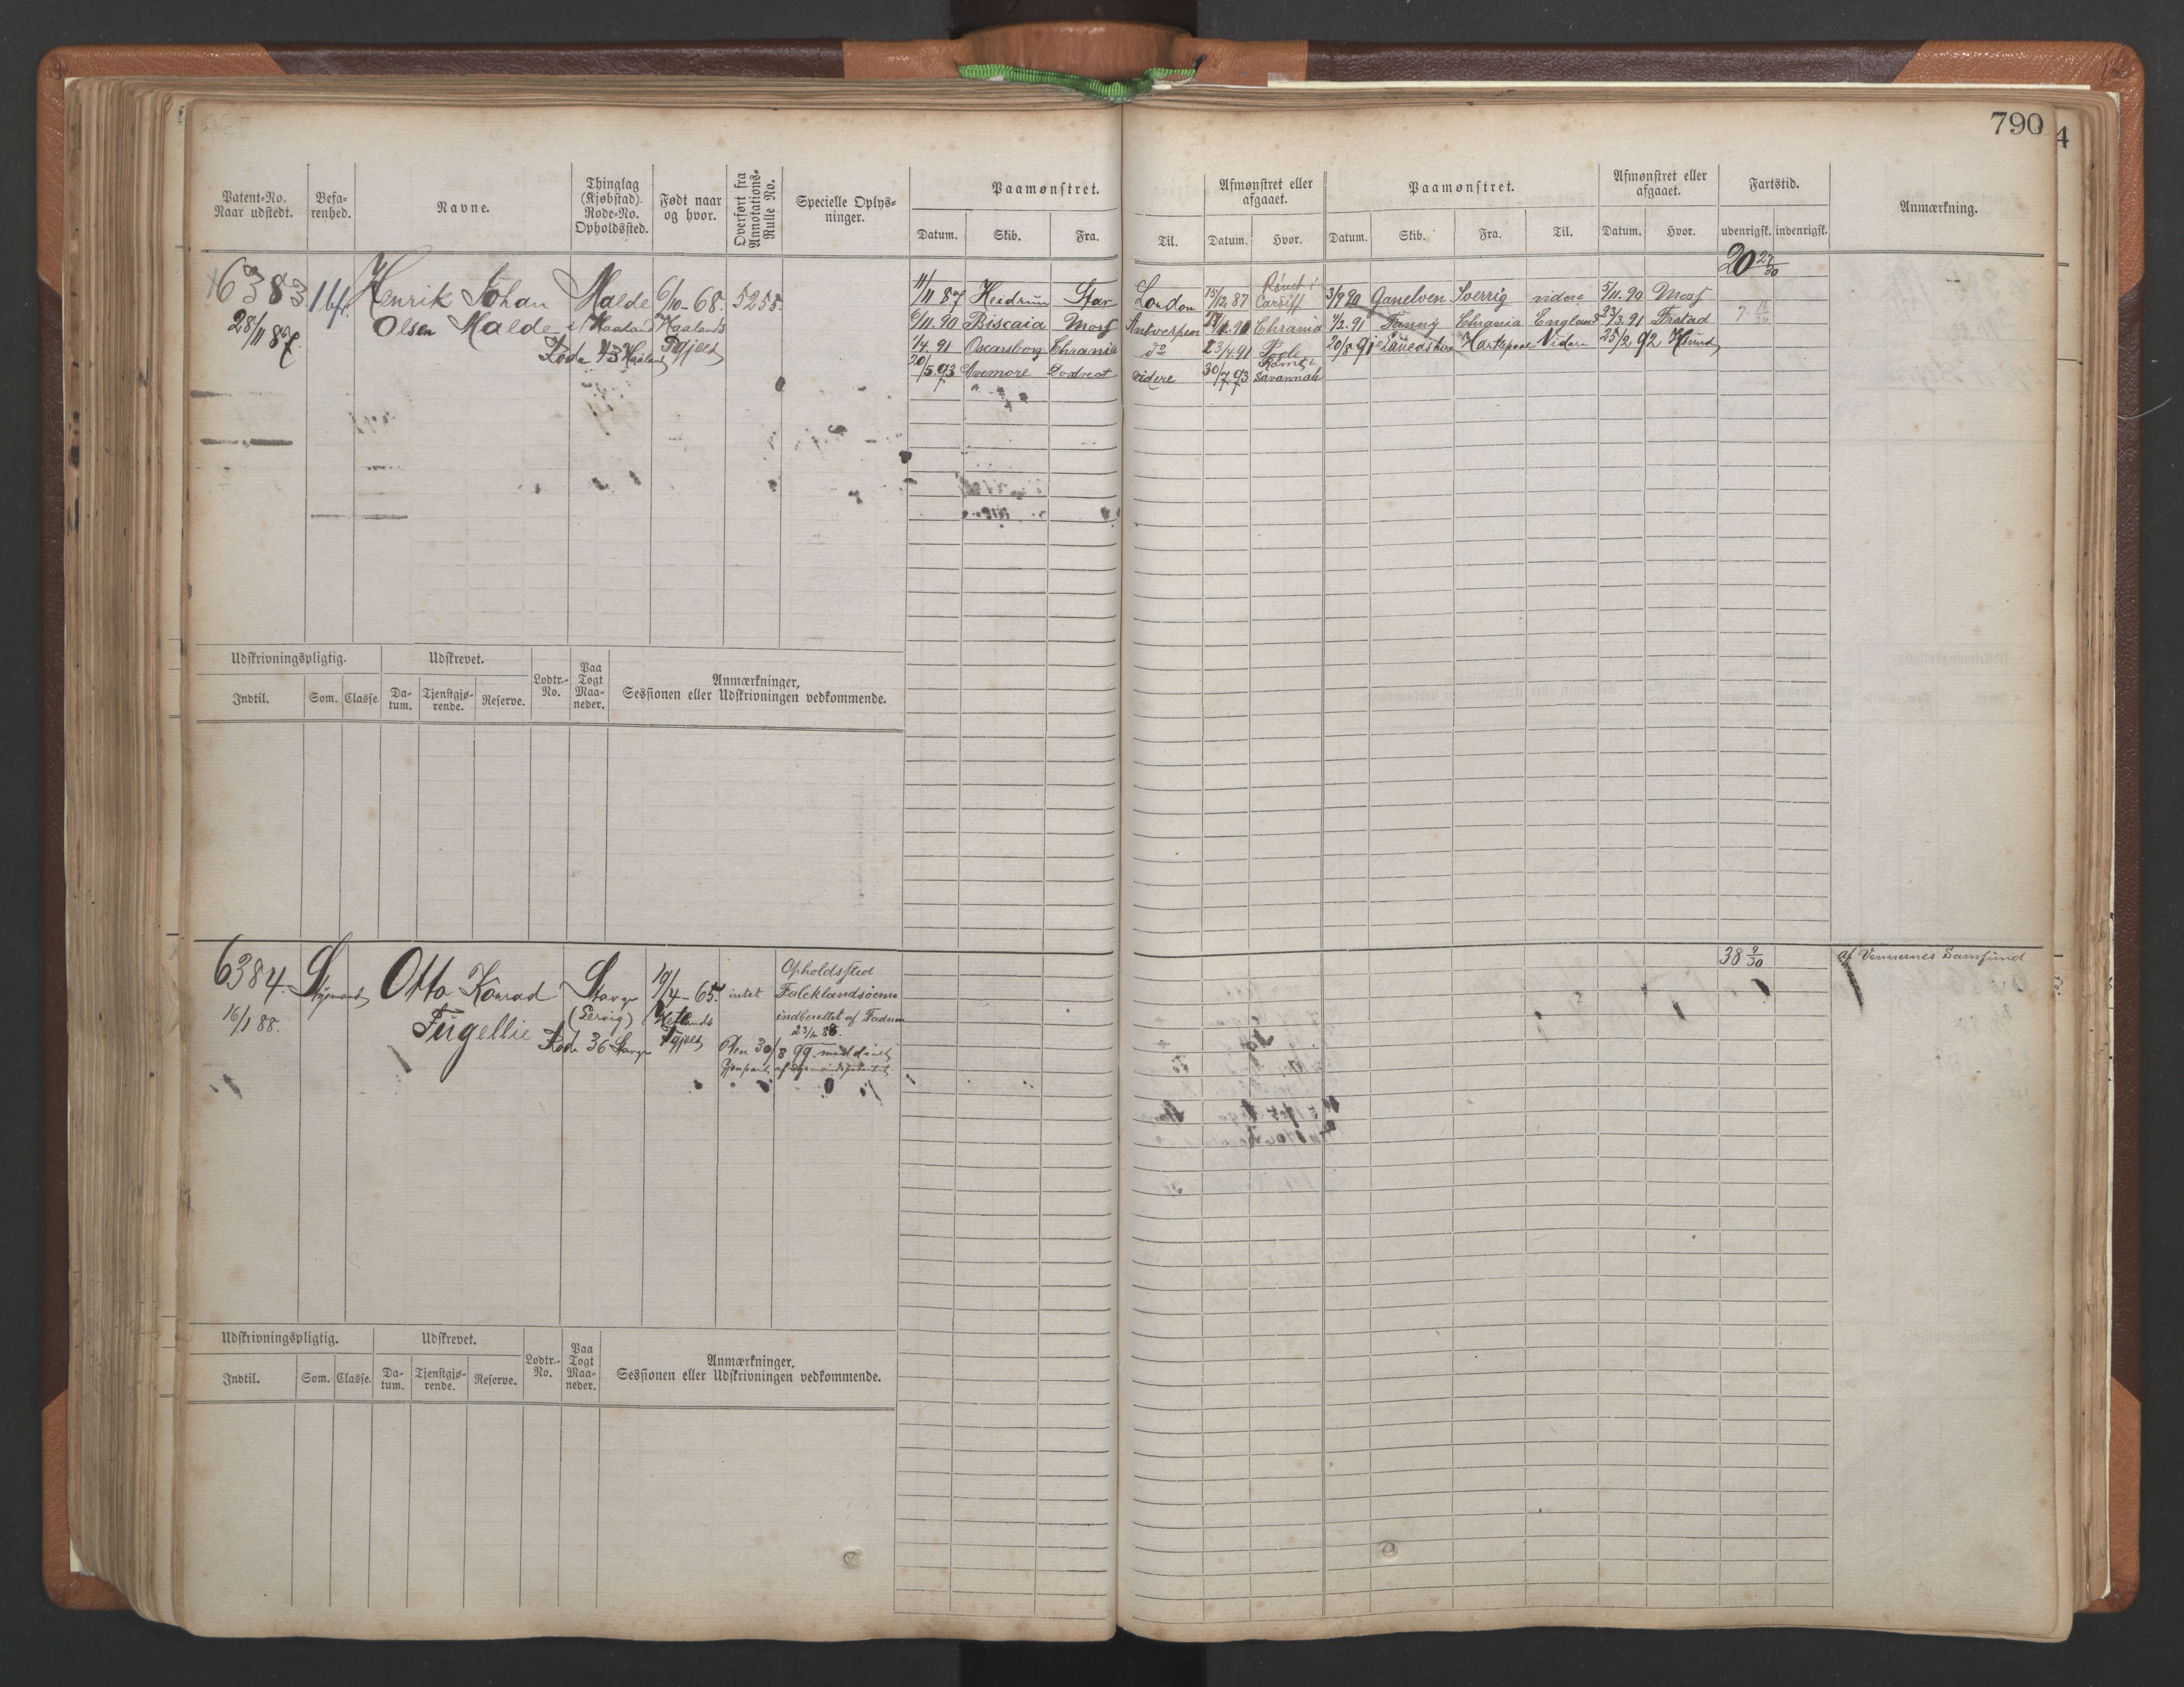 790
4
Patent-No. Naar udstedt.
Befarenhed.
Navne.
Thinglag (Kjøbstad). Rode-No. Opholdssted.
Født naar og hvor.
Overført fra Annotations-Rulle No.
Specielle Oplysninger.
Paamønstret.
Datum. Skib. Fra. Til.
Afmønstret eller afgaaet.
Datum. Hvor.
Paamønstret.
Datum. Skib. Fra. Til.
Afmønstret eller afgaaet.
Datum. Hvor.
Fartstid.
udenrigsk. indenrigsk.
Anmærkning.
20 27/30
6383 Henrik Johan Malde 6/10-68. 5258.
28/11 87. Olsen Malde Haaland Haalands
Rode 43 Haaland Pgjæld
11/11 87 Heidrun Stav London 15/12 87 Rømt i Cardiff 3/9 90 Ganelven Sverrig videre 5/11.90 Moss
6/11.90 Biscaia Moss Antwerpen Chrania 3/2.91 Fanny Chrania England 23/3.91 Frstad 7
1/4.91 Oscarsborg Chrania do 23/4.91 Poole 20/8.91 Hartepool Videre 25/2.92
20/5.93 Avemore Dordrect videre 30/7.93 Rømt i Savannah
Udskrivningspligtig.
Udskrevet.
Lodtr.-No.
Paa Togt Maaneder.
Anmærkninger,
Sessionen eller Udskrivningen vedkommende.
Indtil. Som. Classe. Datum. Tjenstgjørende. Reserve.
6384. Styrmand Otto Konrad Stavgr 19/4-65. intet Opholdssted
16/1 88. Fugellie (Gervig) Hetlands Falcklandsøerne
Rode 36 Stavgr Pgjæld indberettet af Faderen
23/2 88.
Den 30/8 99 meddelt
Gjenpart af styrmandspatentet
38 2/30 af Vennernes Samfund
Udskrivningspligtig.
Udskrevet.
Lodtr.-No.
Paa Togt Maaneder.
Anmærkninger,
Sessionen eller Udskrivningen vedkommende.
Indtil. Som. Classe. Datum. Tjenstgjørende. Reserve.